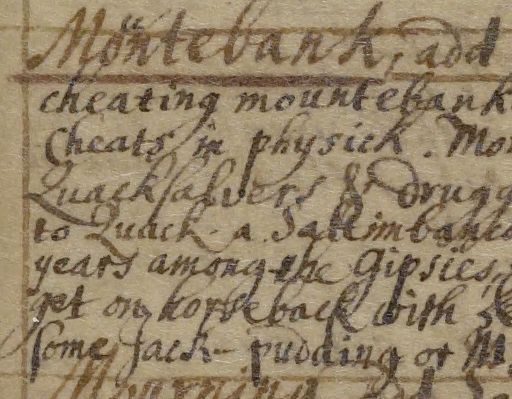 Mountebank, add
cheating mountebank
Cheats in physick. Mo
Quacksalvers & drugg
to Quack. a Saltimbanco
years among the Gipsies,
get on horseback with
some Jack-pudding or M
Mourning